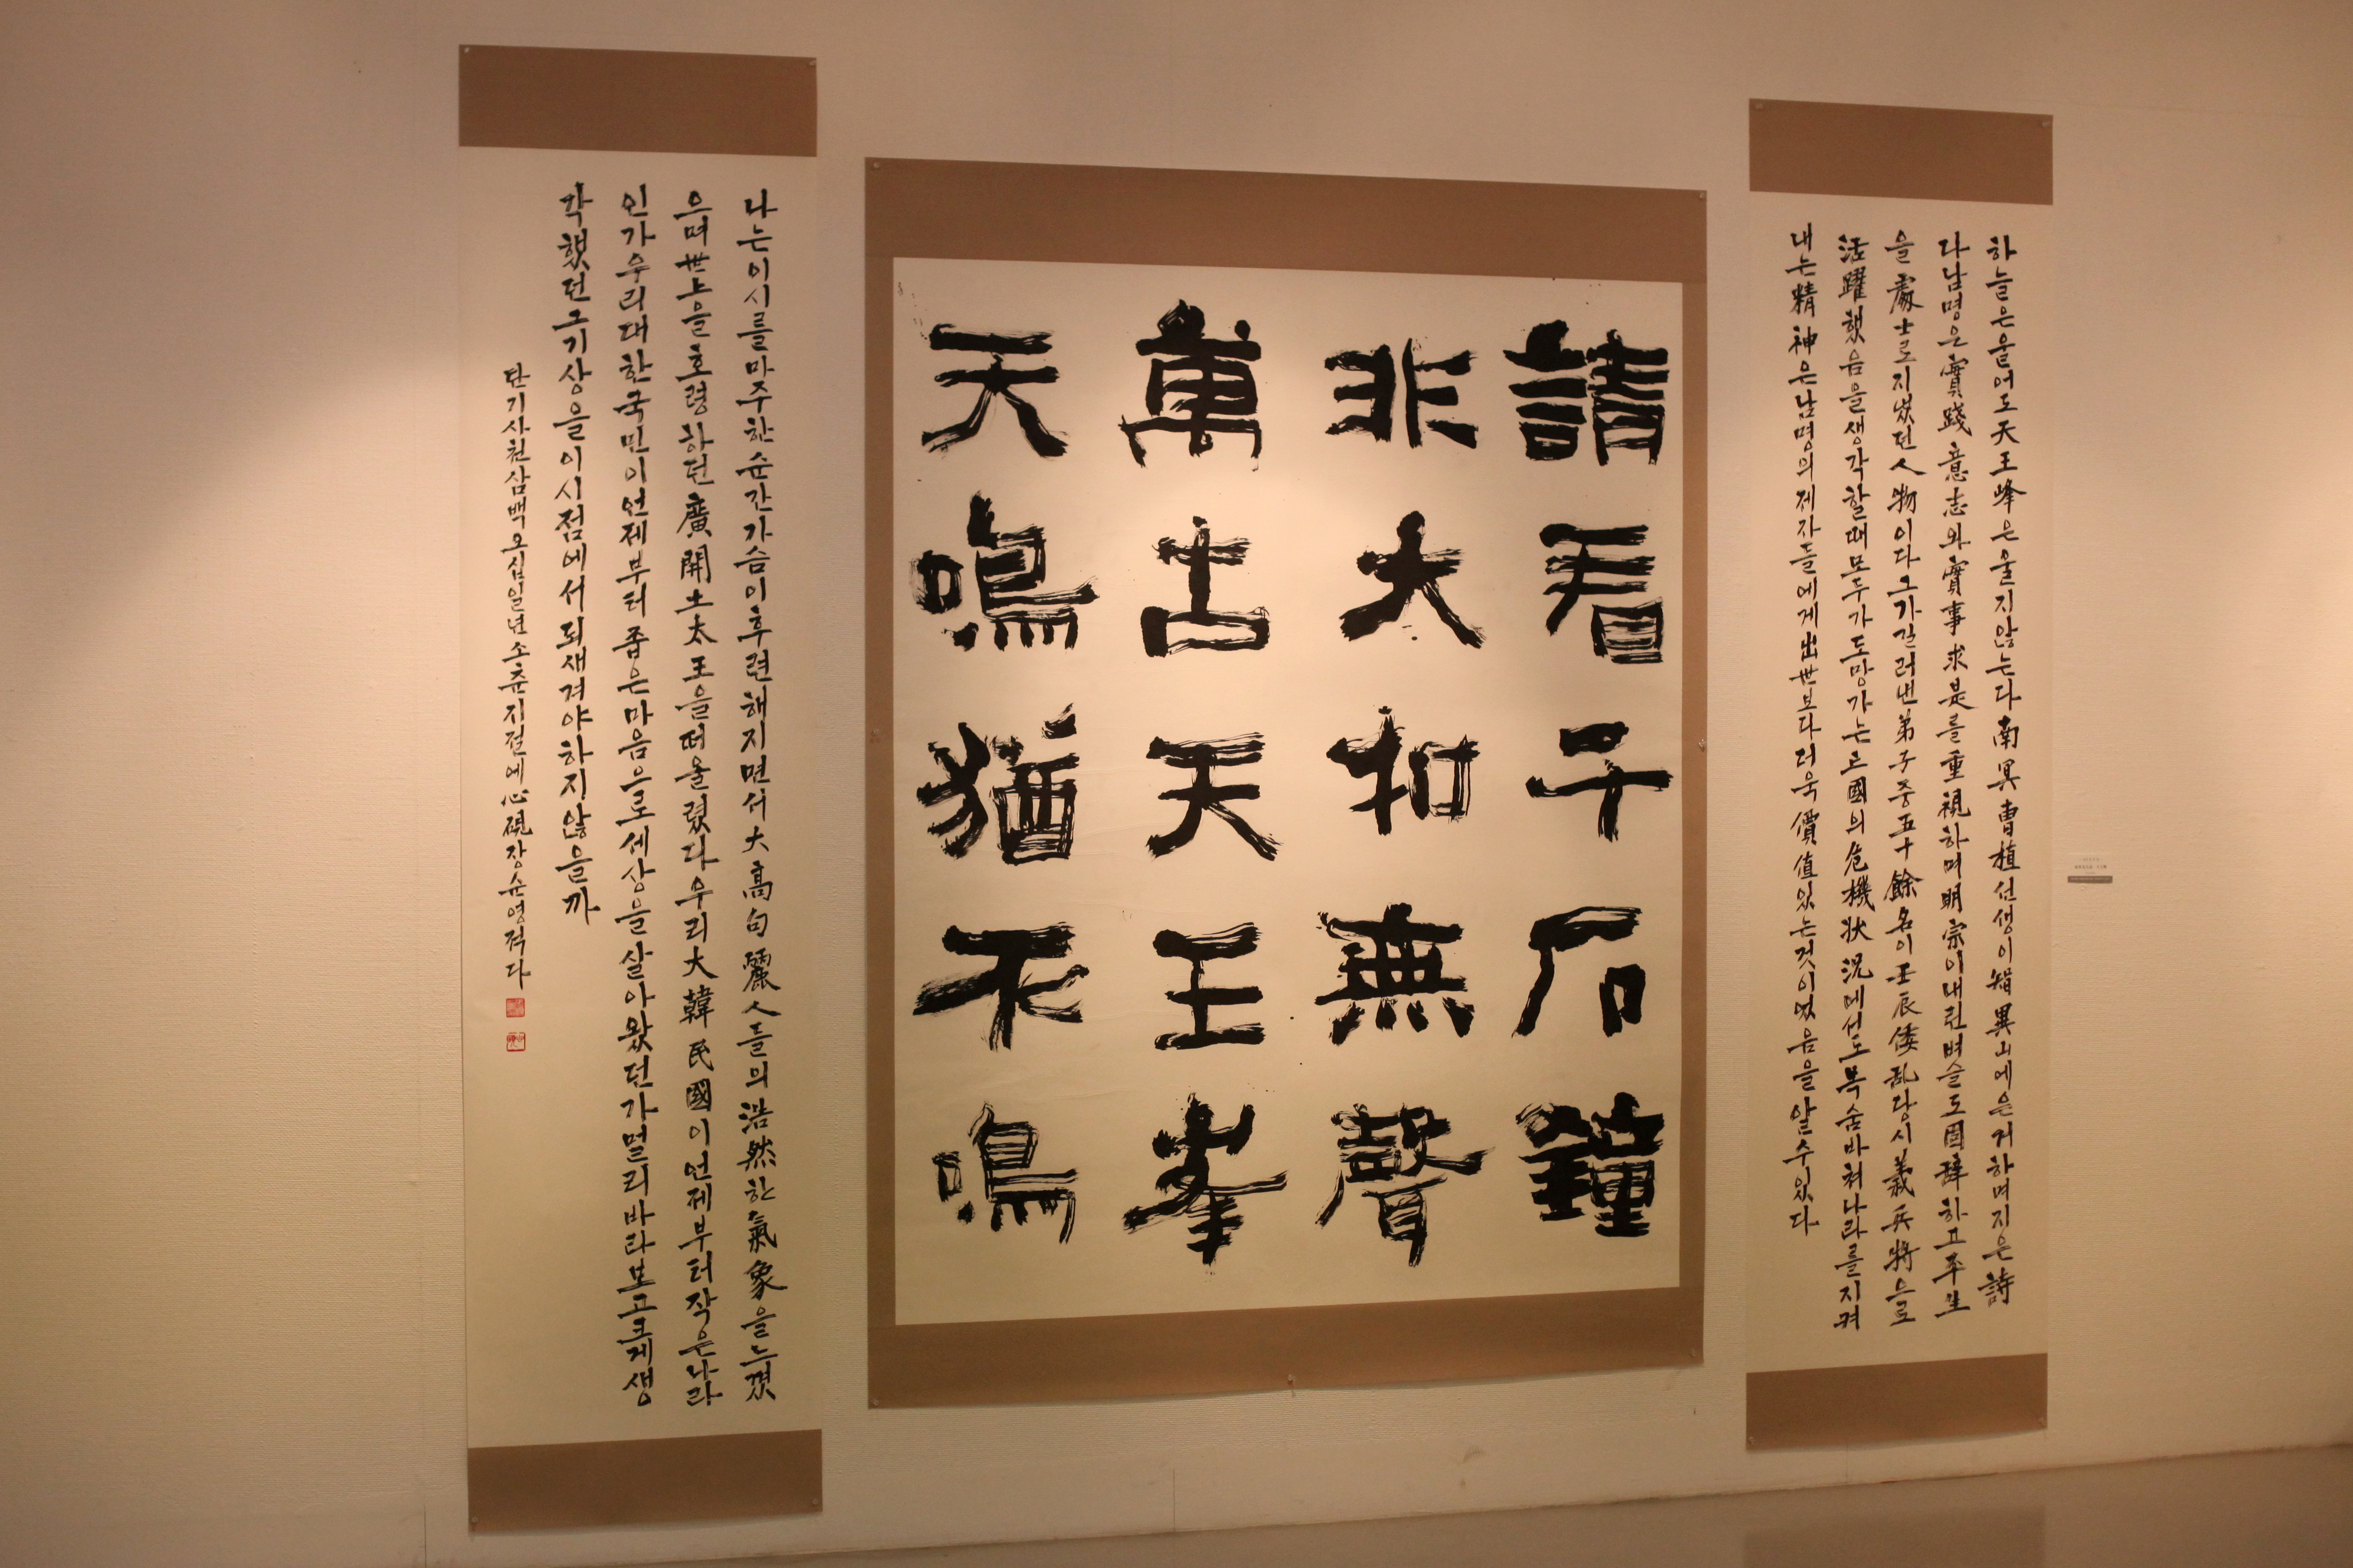 하늘은울어도天王峰은울지않는다南冥曺植선생이智異山에은거하며지은詩
다남명은實踐意志와實事求是를重視하며明宗이내린벼슬도固辭하고平生
을處士로지냈던人物이다그가길러낸弟子중五十餘名이壬辰倭乱당시義兵將으로
活躍했음을생각할때모두가도망가는國의危機状況에서도목숨바쳐나라를지켜
내는精神은남명의제자들에게出世보다더욱價値있는것이었음을알수있다
請看千石鐘
非大扣無聲
萬古天王峯
天鳴猶不鳴
나는이시를마주한순간가슴이후련해지면서大高句麗人들의浩然한氣象을느꼈
으며世上을호령하던廣開土太王을떠올렸다우리大韓民國이언제부터작은나라
인가우리대한국민이언제부터좁은마음으로세상을살아왔던가멀리바라보고크게생
각했던그기상을이시점에서되새겨야하지않을까
단기사천삼백오십일년소춘지절에心硯장순영적다